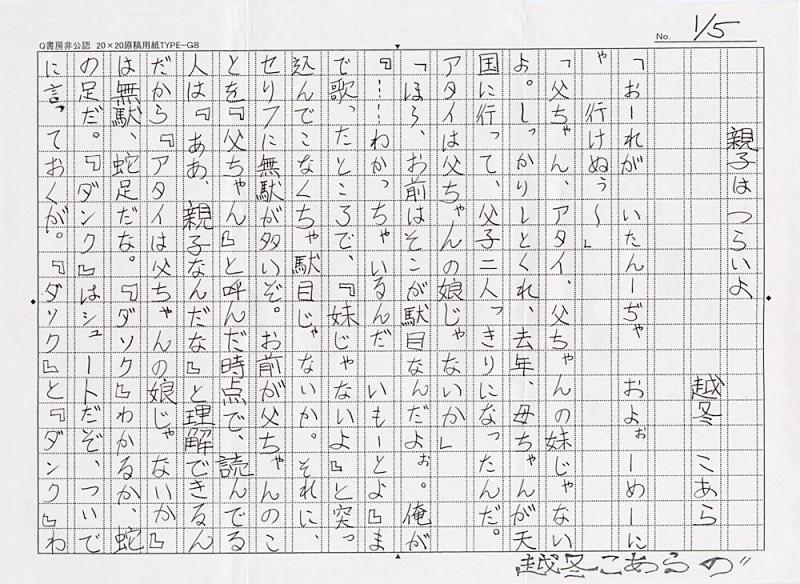 Q書房非公認 20×20原稿用紙TYPE-G8
No. 1/5
親子はつらいよ
越冬 こあら
「おーれが いたんーぢゃ およぉーめーに
ゃ 行けぬぅ〜」
「父ちゃん、アタイ、父ちゃんの妹じゃない
よ。しっかりしとくれ、去年、母ちゃんが天
国に行って、父子二人っきりになったんだ。
アタイは父ちゃんの娘じゃないか」
「ほら、お前はそこが駄目なんだよぉ。俺が
『……わかっちゃいるんだ いもーとよ』ま
で歌ったところで、『妹じゃないよ』と突っ
込んでこなくちゃ駄目じゃないか。それに、
セリフに無駄が多いぞ。お前が父ちゃんのこ
とを『父ちゃん』と呼んだ時点で、読んでる
人は『ああ、親子なんだな』と理解できるん
だから『アタイは父ちゃんの娘じゃないか』
は無駄、蛇足だな。『ダソク』わかるか、蛇
の足だ。『ダンク』はシュートだぞ、ついで
に言っておくが。『ダソク』と『ダンク』わ
越冬こあらの"